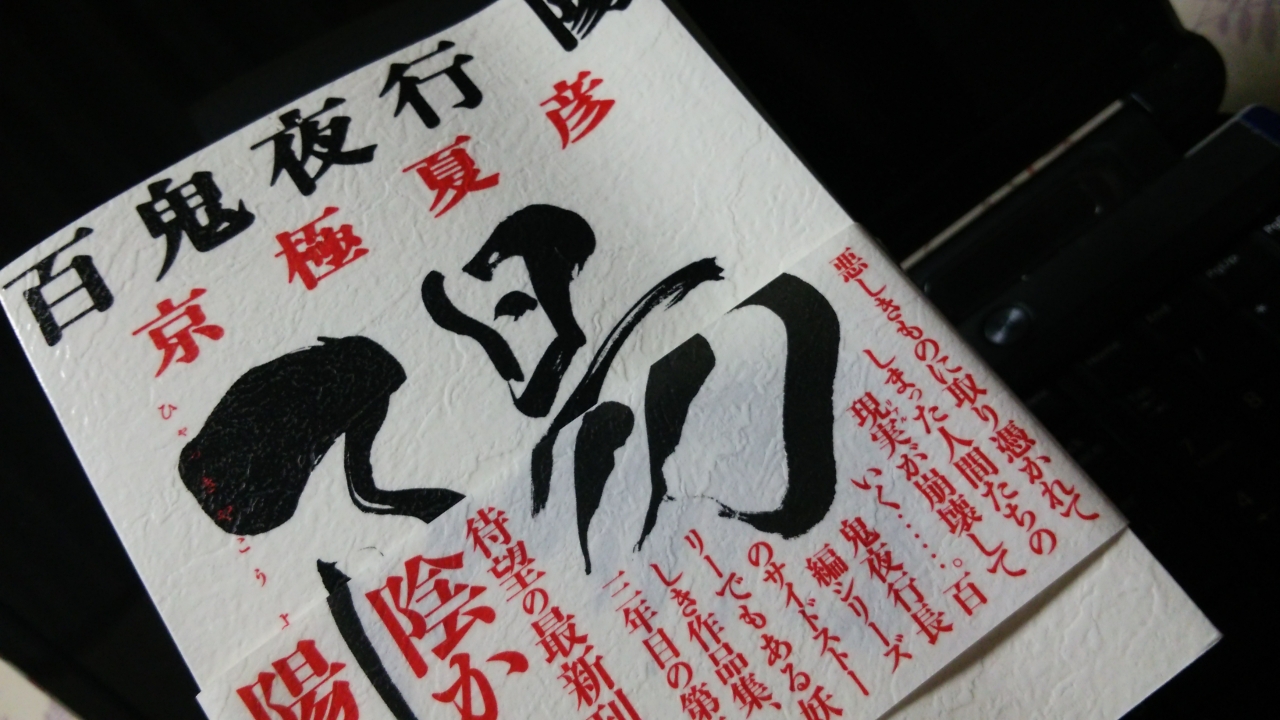 百鬼夜行 陽
京極夏彦
陽
ひゃっきやこう よ
悪しきものに取り憑かれて
しまった人間たちの
現実が崩壊して
いく……。百
鬼夜行長
編シリーズ
のサイドストー
リーでもある妖
しき作品集、
三年目の第
待望の最新刊
陰か
陽